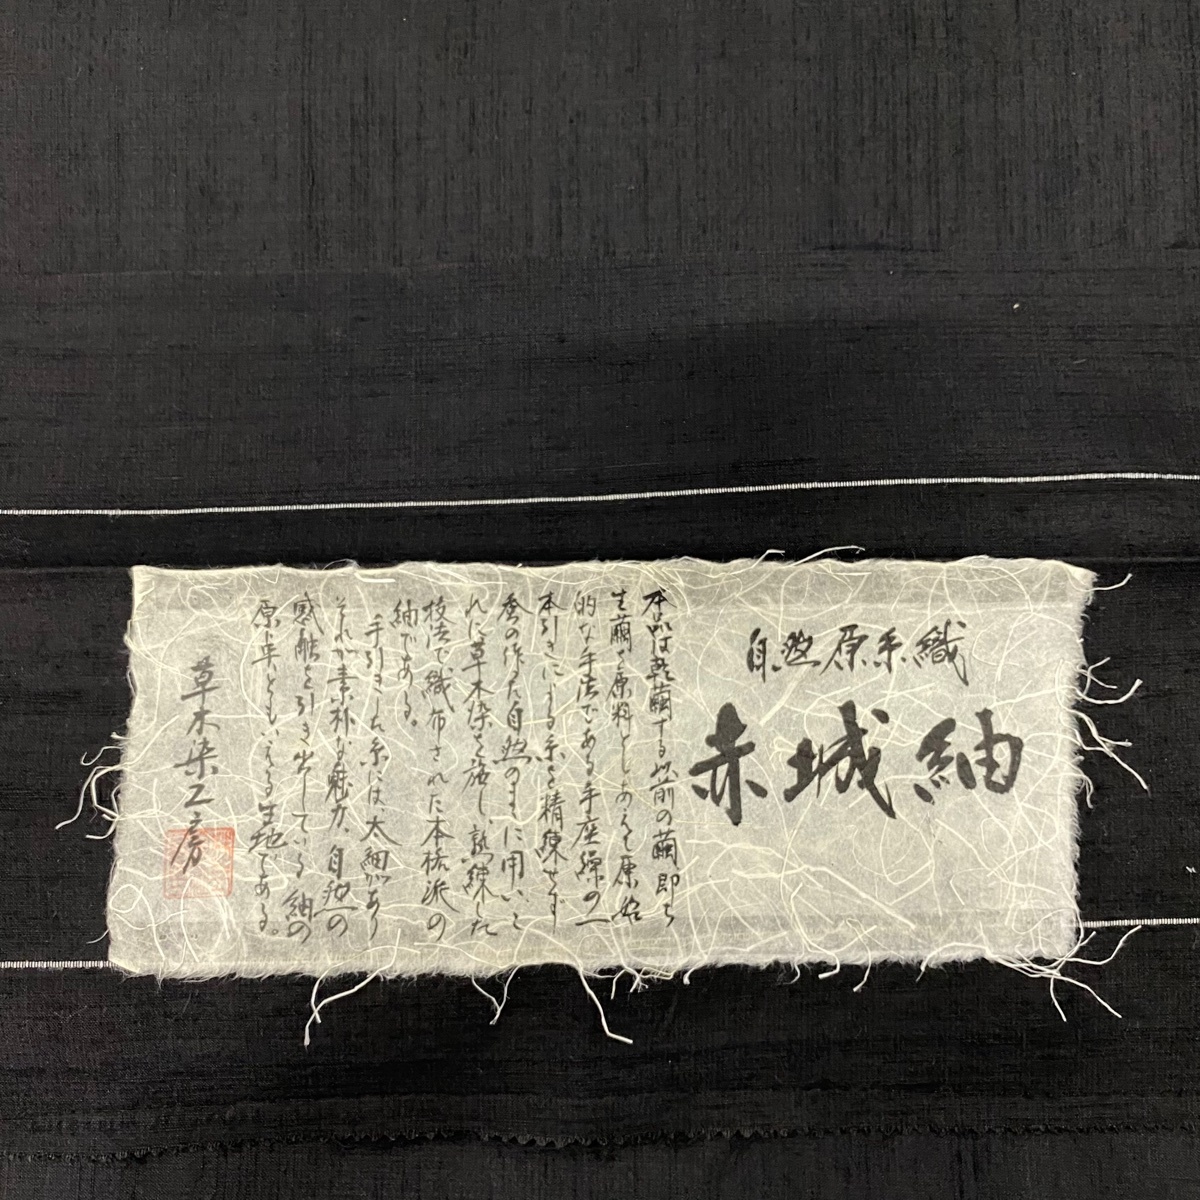 自然原糸織
赤城紬
本品は乾繭する以前の繭即ち
生繭を原料としあえて原始
的な手法である手座繰の一
本引きによる糸を精練せず
蚕の作た自然のまに用いこ
れに草木染を施し熟練した
技法で織布された本格派の
紬である。
手引きした糸には太細があり
それが素朴な魅力、自然の
感触を引き出している紬の
原点ともいえる生地である。
草木染工房